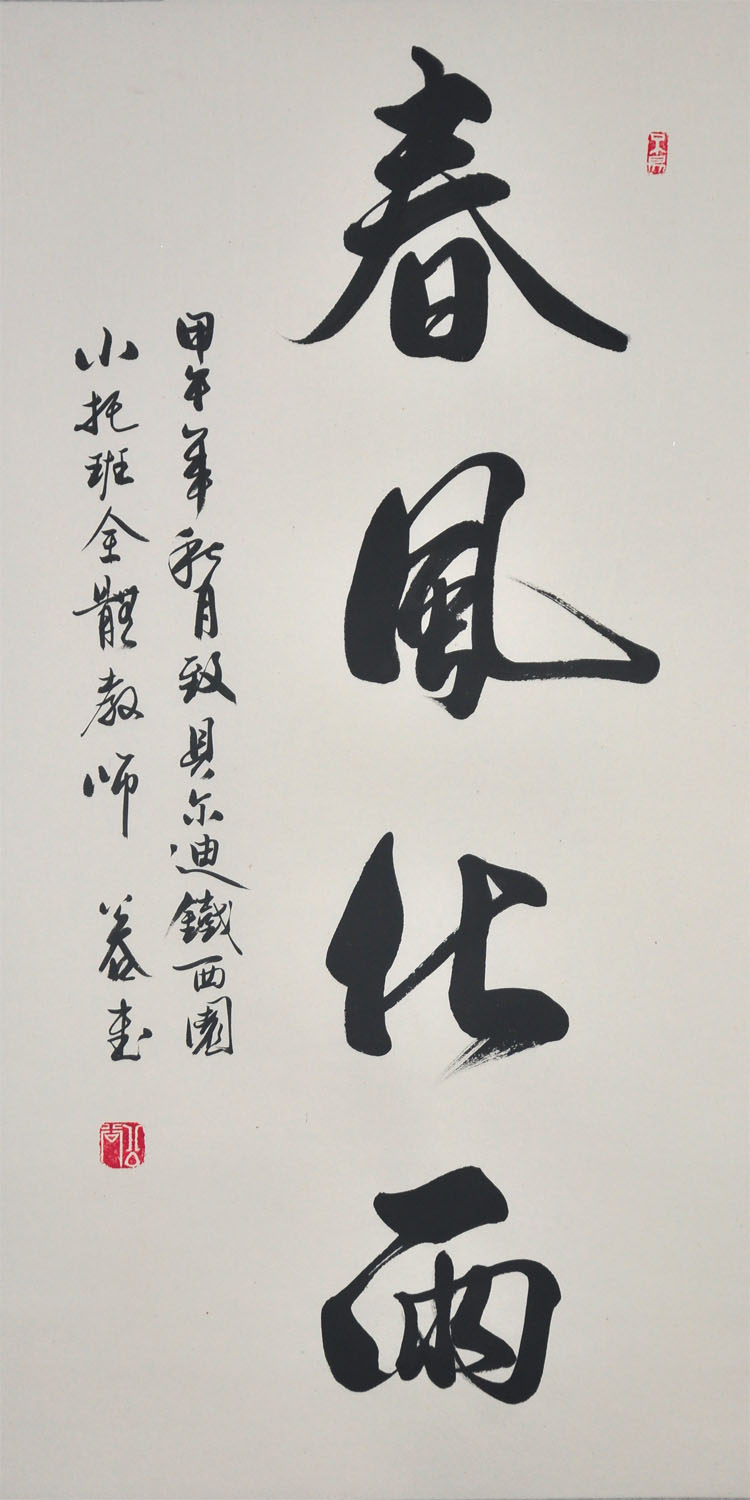 春風化雨
甲午年秋月致貝尔迪鐵西園
小托班全體教師